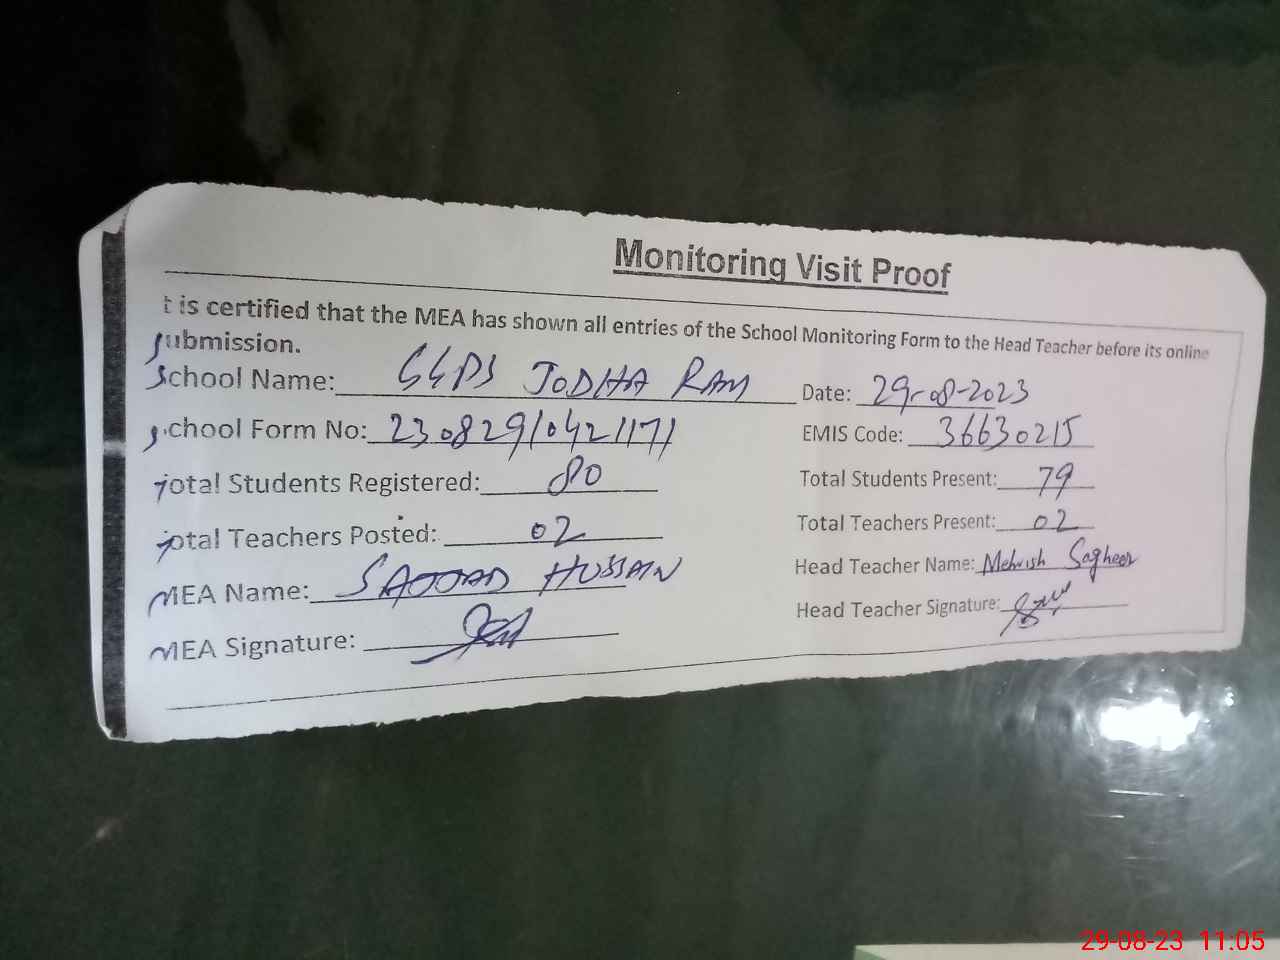 Monitoring Visit Proof
t is certified that the MEA has shown all entries of the School Monitoring Form to the Head Teacher before its online
submission.
School Name: GGPS JODHA RAM Date: 29-08-2023
School Form No: 230829/0421171 EMIS Code: 36630215
Total Students Registered: 80 Total Students Present: 79
Total Teachers Posted: 02 Total Teachers Present: 02
MEA Name: SAJJAD HUSSAIN Head Teacher Name: Mehvish Sagheer
MEA Signature: Head Teacher Signature:
29-08-23 11:05